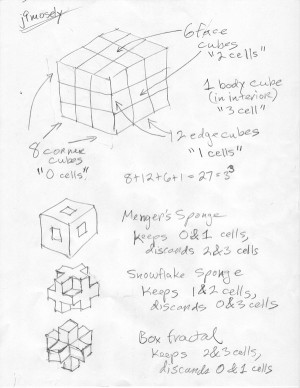 jimosely
6 face
cubes
"2 cells"
1 body cube
(in interior)
"3 cell"
12 edge cubes
"1 cells"
8 corner
cubes
"0 cells"
8+12+6+1 = 27 = 3³
Menger's Sponge
keeps 0&1 cells,
discards 2&3 cells
Snowflake Sponge
keeps 1&2 cells,
discards 0&3 cells
Box fractal
keeps 2&3 cells,
discards 0&1 cells